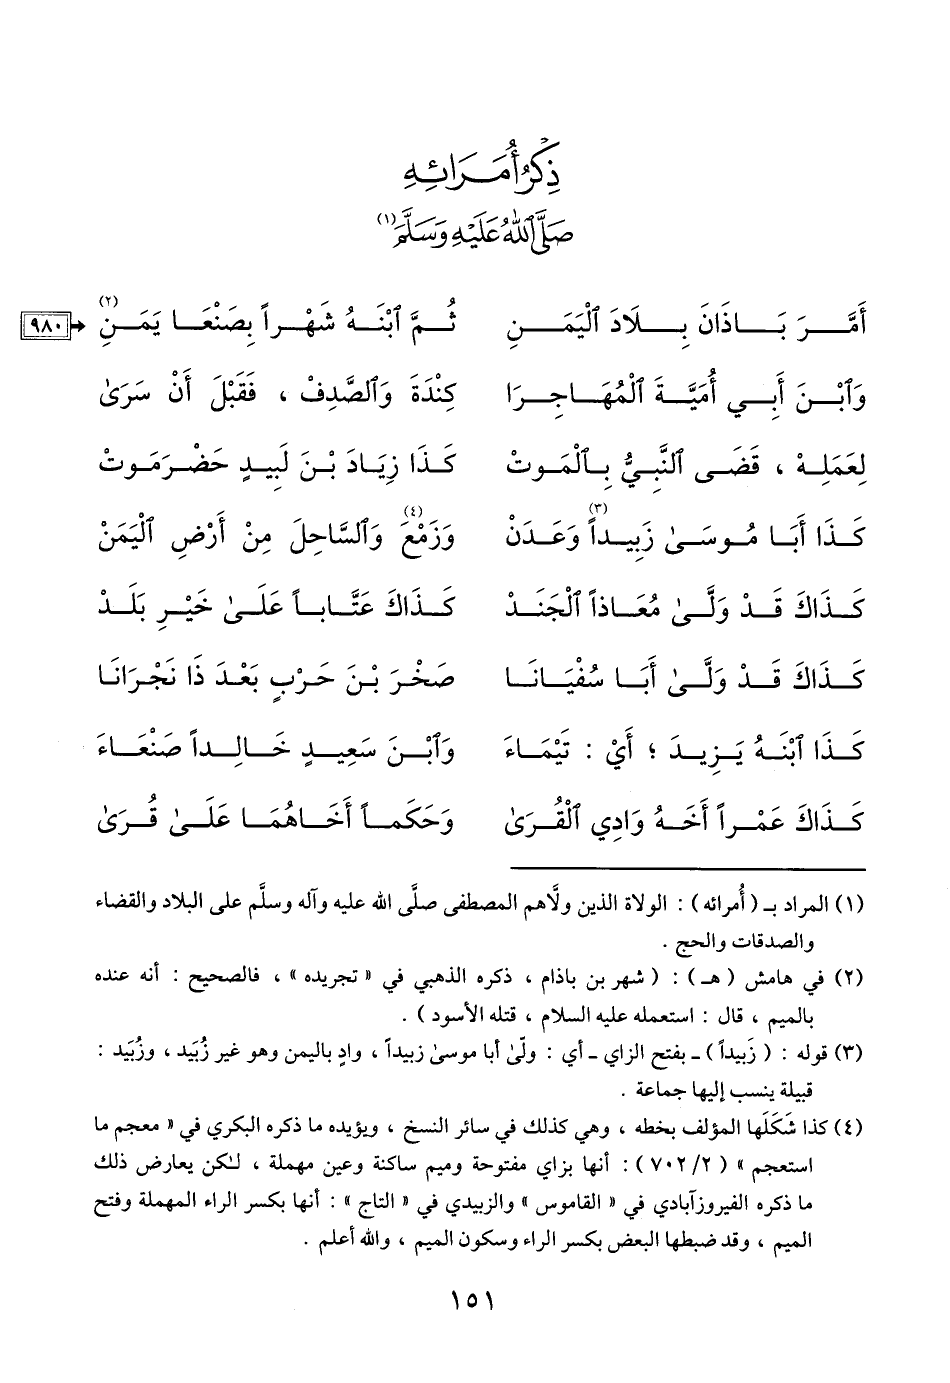 ذِكْرُ أُمَرَائِهِ
صَلَّى ٱللَّهُ عَلَيْهِ وَسَلَّمَ (١)
أَمَّرَ بَاذَانَ بِلَادَ ٱلْيَمَنِ ثُمَّ ٱبْنَهُ شَهْراً بِصَنْعَا يَمَنِ (٢) ٩٨٠
وَٱبْنَ أَبِي أُمَيَّةَ ٱلْمُهَاجِرَا كِنْدَةَ وَٱلصَّدِفْ ، فَقَبْلَ أَنْ سَرَىٰ
لِعَمَلِهْ ، قَضَى ٱلنَّبِيُّ بِٱلْمَوتْ كَذَا زِيَادَ بْنَ لَبِيدٍ حَضْرَمَوتْ
كَذَا أَبَا مُوسَىٰ زَبِيداً (٣) وَعَدَنْ وَزَمْعَ (٤) وَٱلسَّاحِلَ مِنْ أَرْضِ ٱلْيَمَنْ
كَذَاكَ قَدْ وَلَّىٰ مُعَاذاً ٱلْجَنَدْ كَذَاكَ عَتَّاباً عَلَىٰ خَيْرِ بَلَدْ
كَذَاكَ قَدْ وَلَّىٰ أَبَا سُفْيَانَا صَخْرَ بْنَ حَرْبٍ بَعْدَ ذَا نَجْرَانَا
كَذَا ٱبْنَهُ يَزِيدَ ؛ أَيْ : تَيْمَاءَ وَٱبْنَ سَعِيدٍ خَالِداً صَنْعَاءَ
كَذَاكَ عَمْراً أَخَهُ وَادِي ٱلْقُرَىٰ وَحَكَماً أَخَاهُمَا عَلَىٰ قُرَىٰ
(١) المراد بـ ( أُمرائه ) : الولاة الذين ولَّاهم المصطفى صلَّى الله عليه وآله وسلَّم على البلاد والقضاء
والصدقات والحج .
(٢) في هامش ( هـ ) : ( شهر بن باذام ، ذكره الذهبي في « تجريده » ، فالصحيح : أنه عنده
بالميم ، قال : استعمله عليه السلام ، قتله الأسود ) .
(٣) قوله : ( زَبيداً ) ـ بفتح الزاي ـ أي : ولّىٰ أبا موسىٰ زبيداً ، وادٍ باليمن وهو غير زُبَيد ، وزُبَيد :
قبيلة ينسب إليها جماعة .
(٤) كذا شَكَلَها المؤلف بخطه ، وهي كذلك في سائر النسخ ، ويؤيده ما ذكره البكري في « معجم ما
استعجم » ( ٢/ ٧٠٢ ) : أنها بزاي مفتوحة وميم ساكنة وعين مهملة ، لـٰكن يعارض ذلك
ما ذكره الفيروزآبادي في « القاموس » والزبيدي في « التاج » : أنها بكسر الراء المهملة وفتح
الميم ، وقد ضبطها البعض بكسر الراء وسكون الميم ، والله أعلم .
١٥١